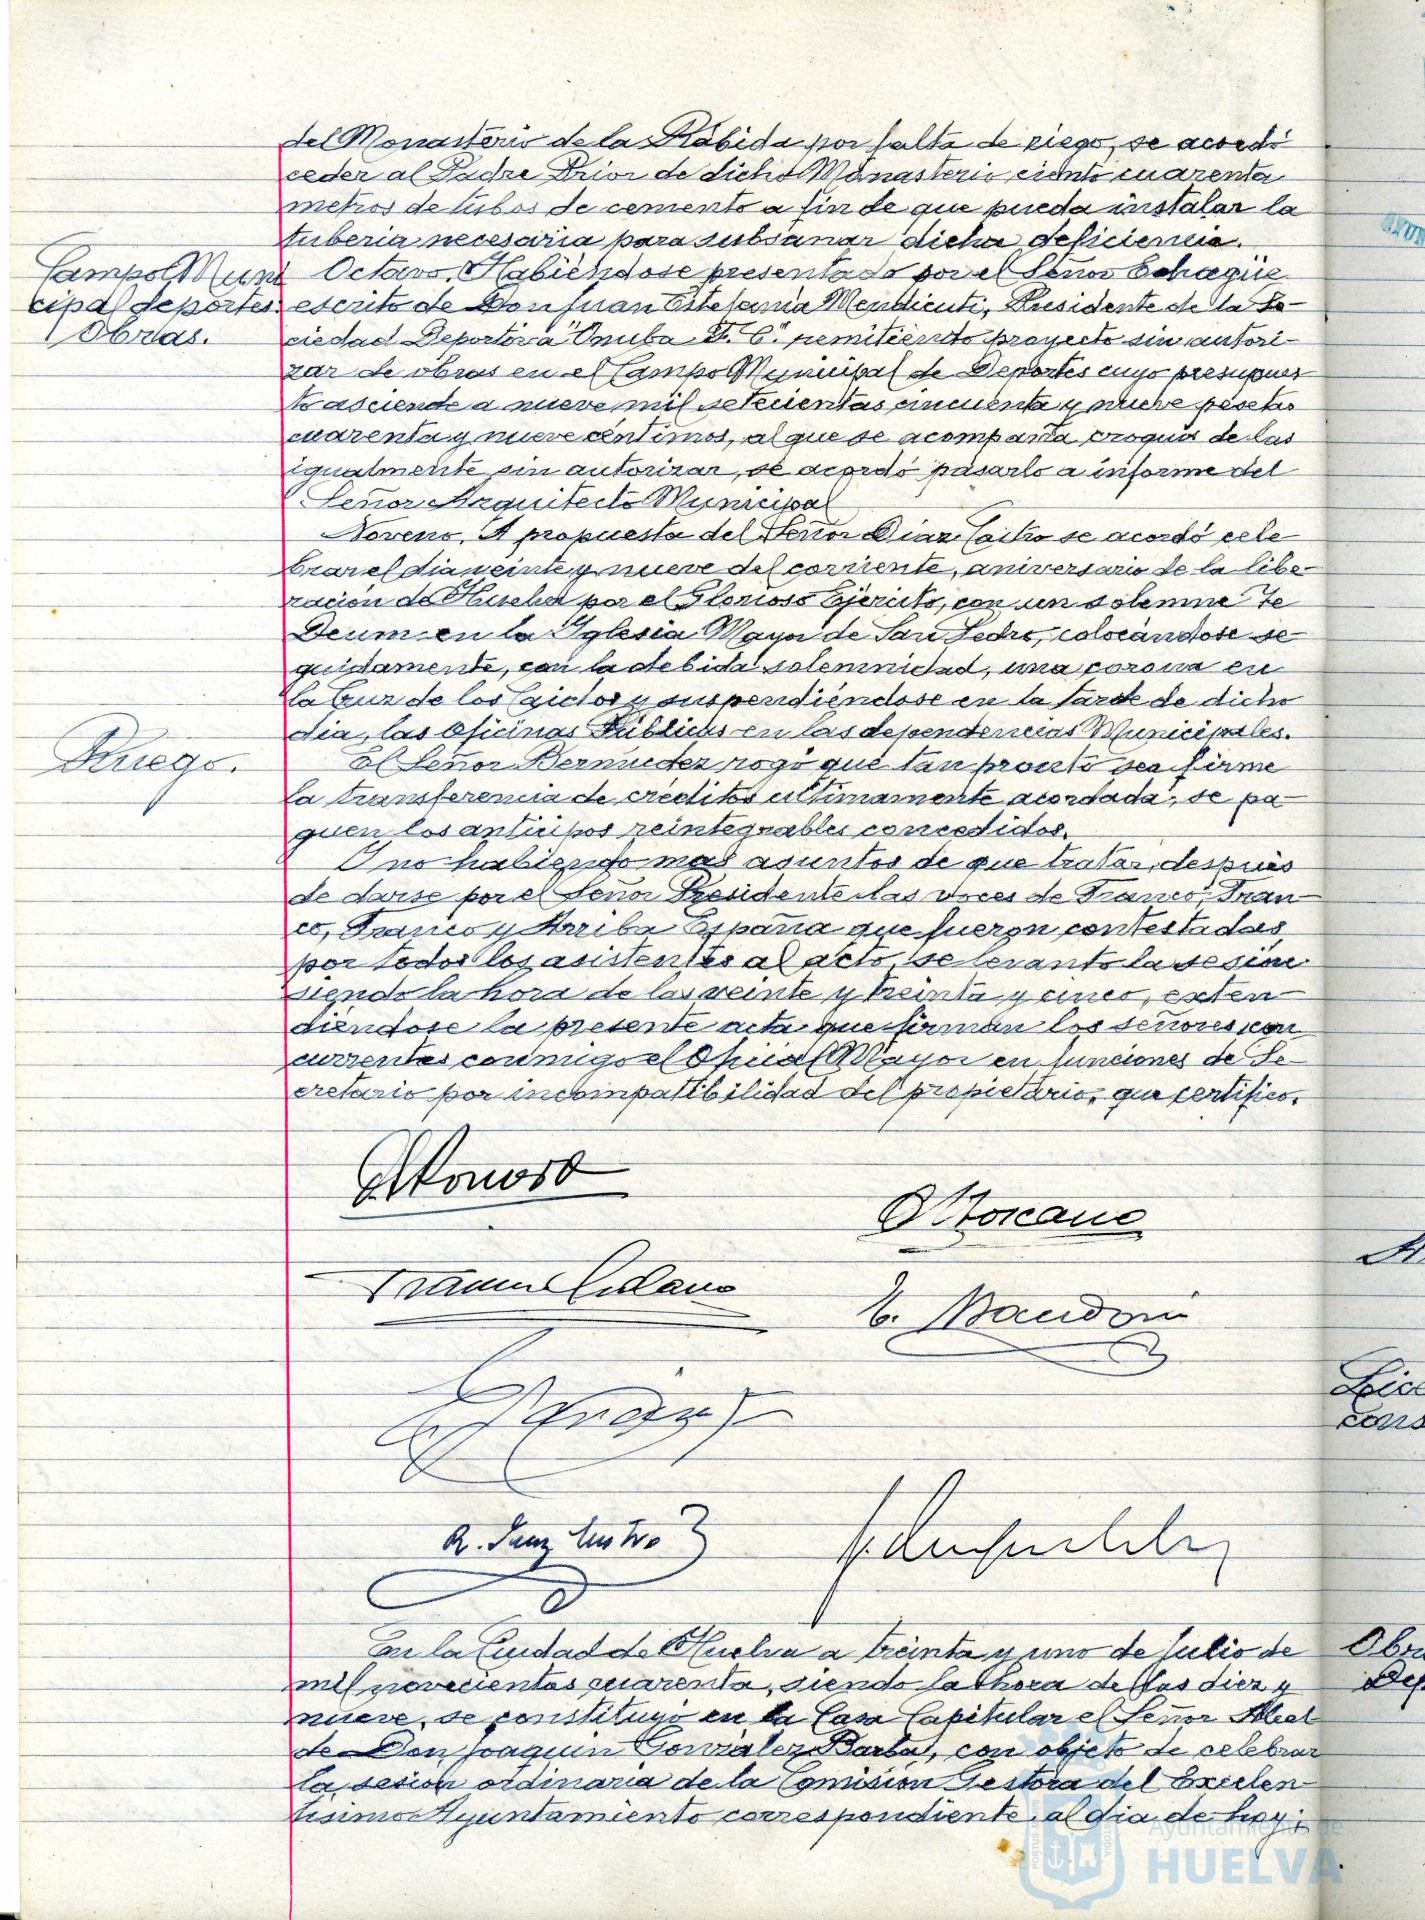 del Monasterio de la Rábida por falta de riego, se acordó
ceder al Padre Prior de dicho Monasterio ciento cuarenta
metros de tubos de cemento a fin de que pueda instalar la
tubería necesaria para subsanar dicha deficiencia.
Campo Muni
cipal deportes
Obras.
Octavo. Habiéndose presentado por el Señor Echagüe
escrito de Don Juan Estefanía Mendicuti, Presidente de la So-
ciedad Deportiva "Onuba F. C." remitiendo proyecto sin autori-
zar de obras en el Campo Municipal de Deportes cuyo presupues
to asciende a nueve mil setecientas cincuenta y nueve pesetas
cuarenta y nueve céntimos, al que se acompaña croquis de las
igualmente sin autorizar, se acordó pasarlo a informe del
Señor Arquitecto Municipal
Noveno. A propuesta del Señor Díaz Castro se acordó cele
brar el dia veinte y nueve del corriente, aniversario de la libe-
ración de Huelva por el Glorioso Ejército, con un solemne Te
Deum en la Iglesia Mayor de San Pedro, colocándose se-
guidamente, con la debida solemnidad, una corona en
la Cruz de los Caidos y suspendiéndose en la tarde de dicho
dia, las Oficinas Públicas en las dependencias Municipales.
Ruego.
El Señor Bermudez rogó que tan pronto sea firme
la transferencia de créditos ultimamente acordada, se pa-
guen los anticipos reintegrables concedidos.
Y no habiendo mas asuntos de que tratar, después
de darse por el Señor Presidente las voces de Franco, Fran-
co, Franco y Arriba España que fueron contestadas
por todos los asistentes al acto, se levantó la sesión
siendo la hora de las veinte y treinta y cinco, exten-
diéndose la presente acta que firman los señores con
currentes conmigo el Oficial Mayor en funciones de Se-
cretario por incompatibilidad del propietario, que certifico.
R. Sanz
En la Ciudad de Huelva a treinta y uno de Julio de
mil novecientos cuarenta, siendo la hora de las diez y
nueve, se constituyó en la Casa Capitular el Señor Alcal
de Don Joaquín González Barba, con objeto de celebrar
la sesión ordinaria de la Comisión Gestora del Excelen-
tísimo Ayuntamiento correspondiente al dia de hoy;
Lice
cons
Obra
Dep
Ayuntamiento de
HUELVA